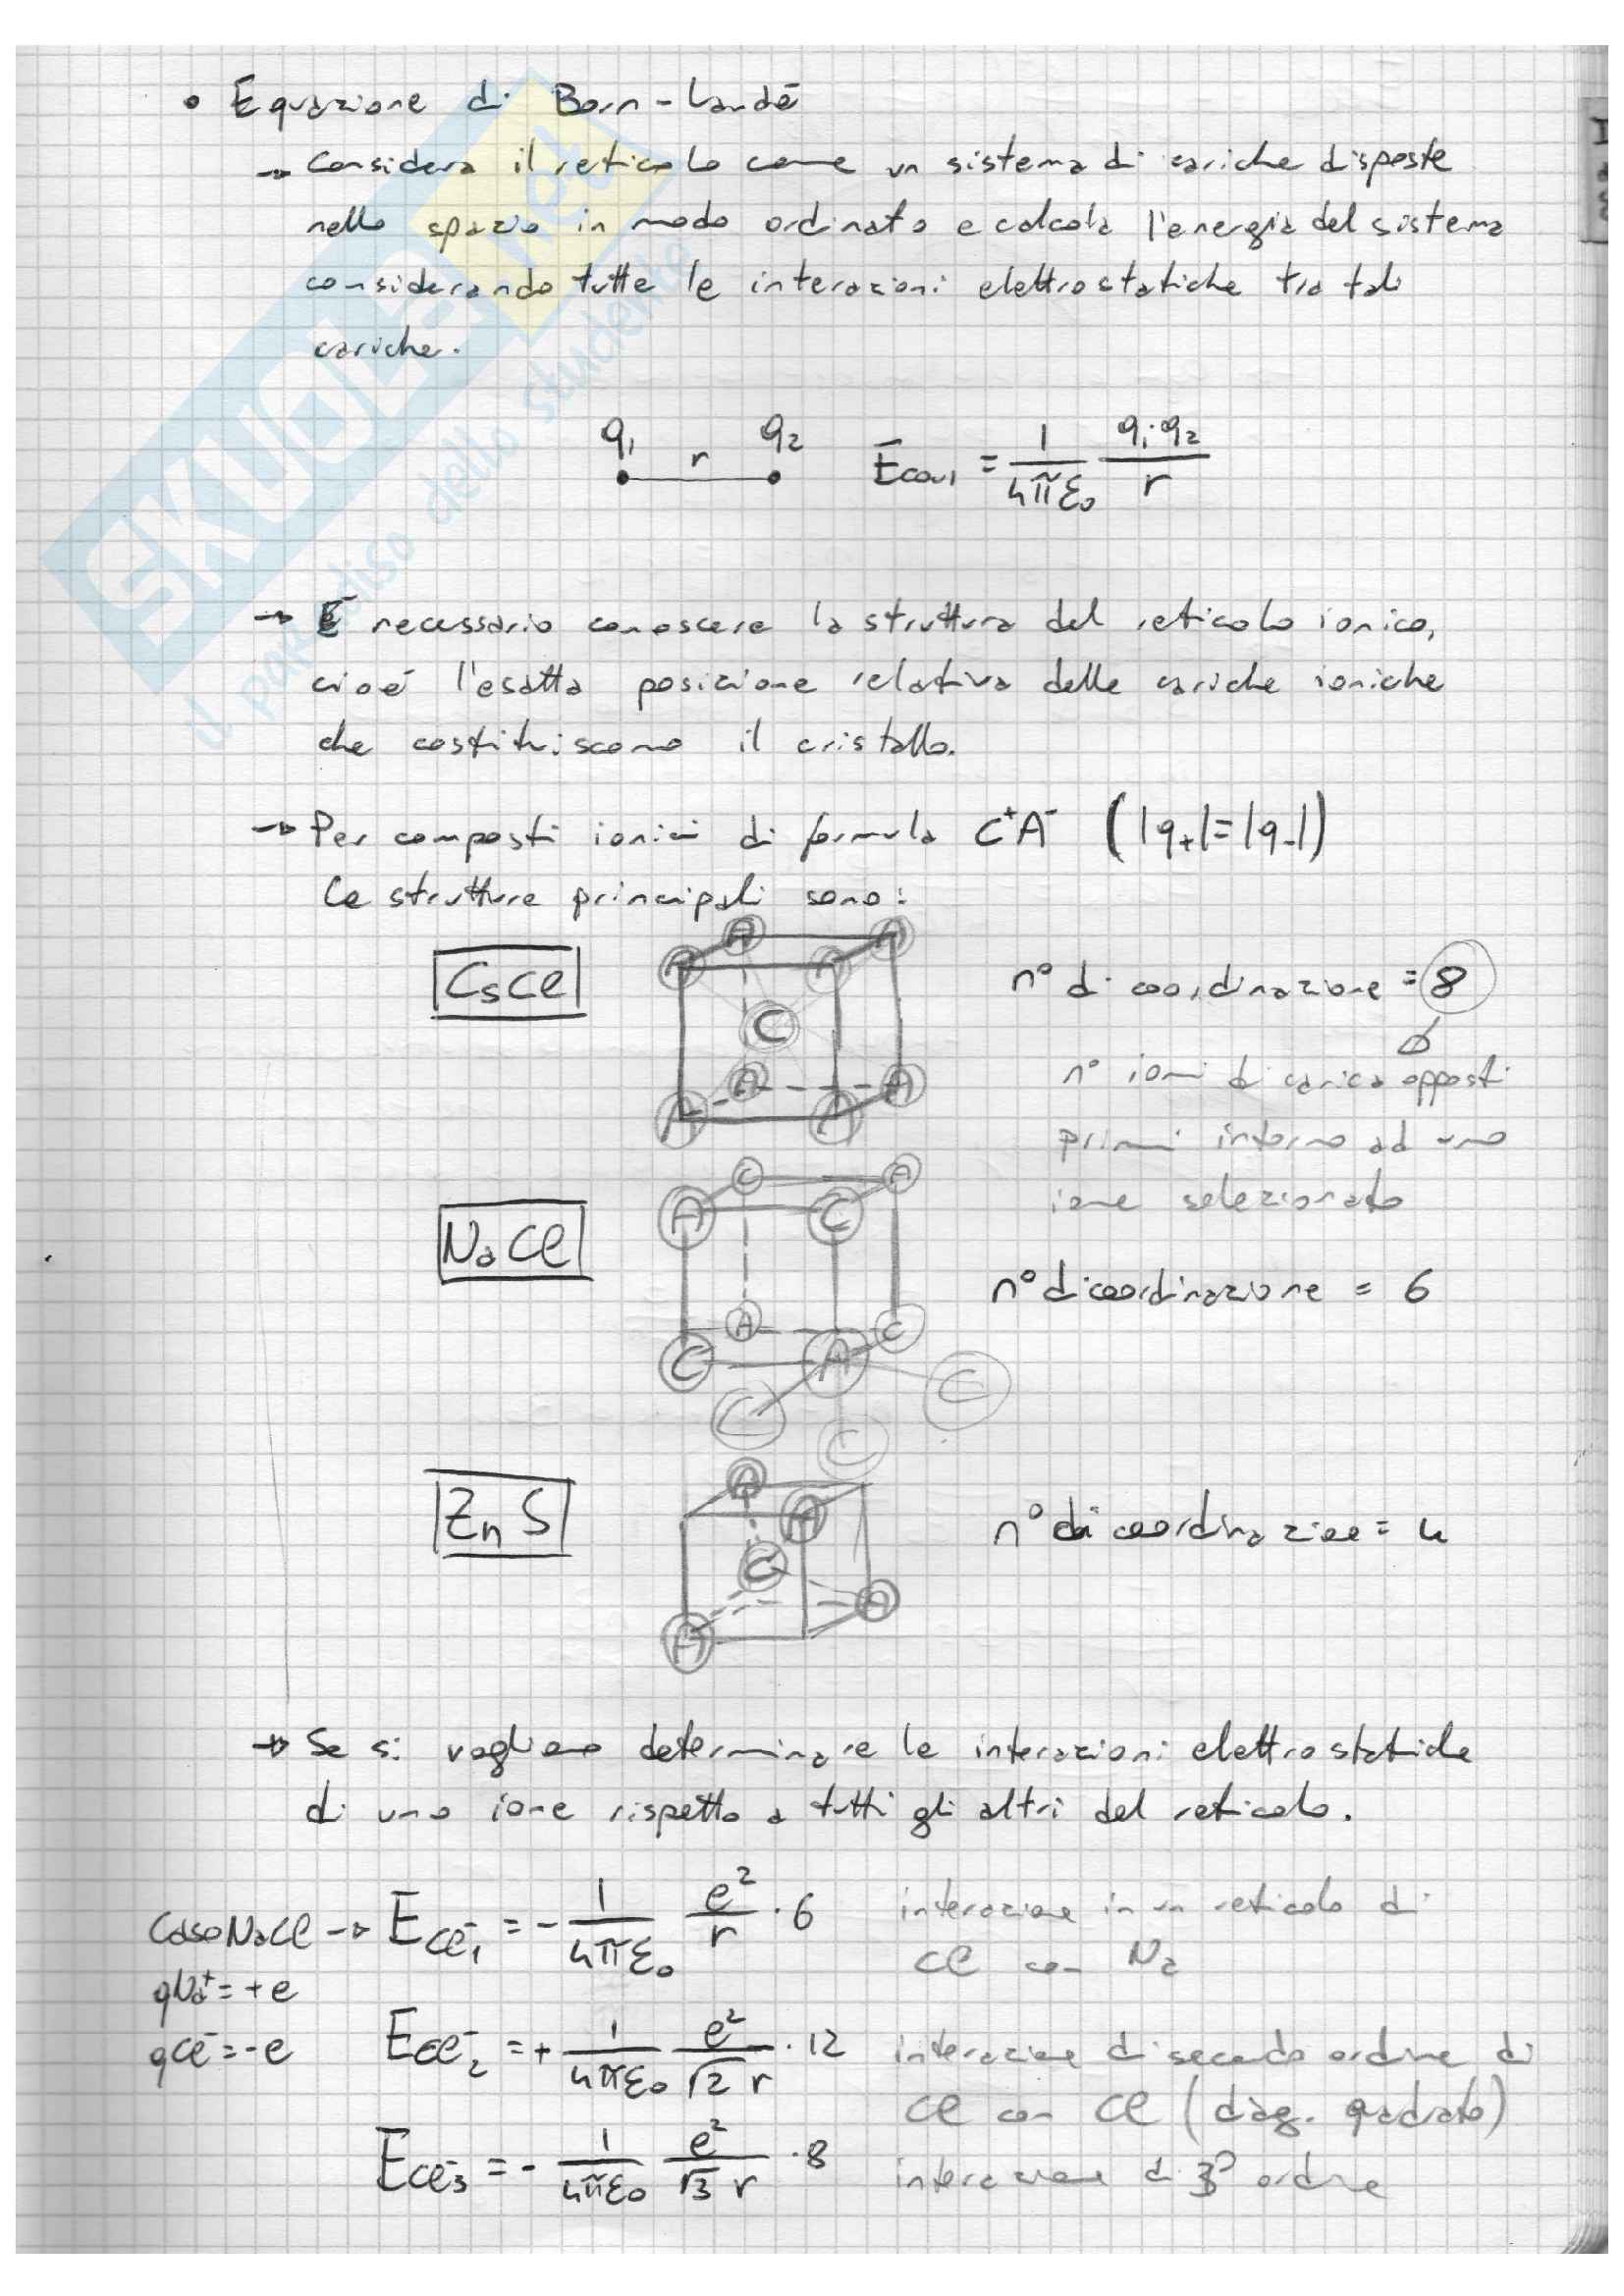 • Equazione di Born-Landé
→ Considera il reticolo come un sistema di cariche disposte
nello spazio in modo ordinato e calcola l'energia del sistema
considerando tutte le interazioni elettrostatiche tra tali
cariche.
q₁ r q₂ E_coul = 1/(4πε₀) q₁·q₂/r
→ È necessario conoscere la struttura del reticolo ionico,
cioè l'esatta posizione relativa delle cariche ioniche
che costituiscono il cristallo.
→ Per composti ionici di formula C⁺A⁻ (|q₊|=|q₋|)
le strutture principali sono:
CsCl
A A A A C A A A A
n° di coordinazione = 8
n° ioni di carica opposti
primi intorno ad uno
ione selezionato
NaCl
C A A C A C C A C C C
n° di coordinazione = 6
ZnS
A A C A A
n° di coordinazione = 4
→ Se si vogliono determinare le interazioni elettrostatiche
di uno ione rispetto a tutti gli altri del reticolo.
Caso NaCl → E_Cl⁻₁ = - 1/(4πε₀) e²/r · 6 interazione in un reticolo di
Cl con Na
qNa⁺ = +e
qCl⁻ = -e E_Cl⁻₂ = + 1/(4πε₀) e²/(√2 r) · 12 interazione di secondo ordine di
Cl con Cl (diag. quadrato)
E_Cl⁻₃ = - 1/(4πε₀) e²/(√3 r) · 8 interazione di 3° ordine
SKUOLA.net
il paradiso dello studente